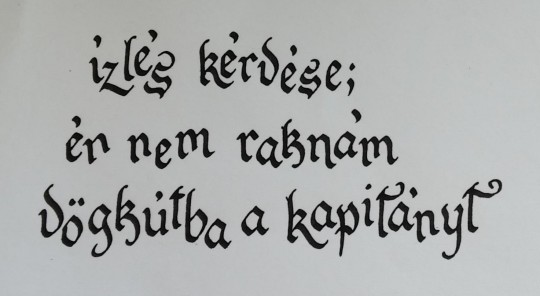 ízlés kérdése;
én nem raknám
dögkútba a kapitányt